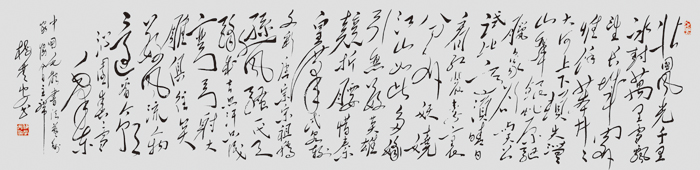 北国风光千里
冰封万里雪飘
望长城内外
惟余莽莽
大河上下顿失滔滔
山舞银蛇原驰
蜡象欲与天公
试比高须晴日
看红装素裹
分外妖娆
江山如此多娇
引无数英雄
竞折腰惜秦
皇汉武略输
文采唐宗宋祖稍
逊风骚一代天
骄成吉思汗只识
弯弓射大
雕俱往矣
数风流人物
还看今朝
沁园春雪
毛泽东